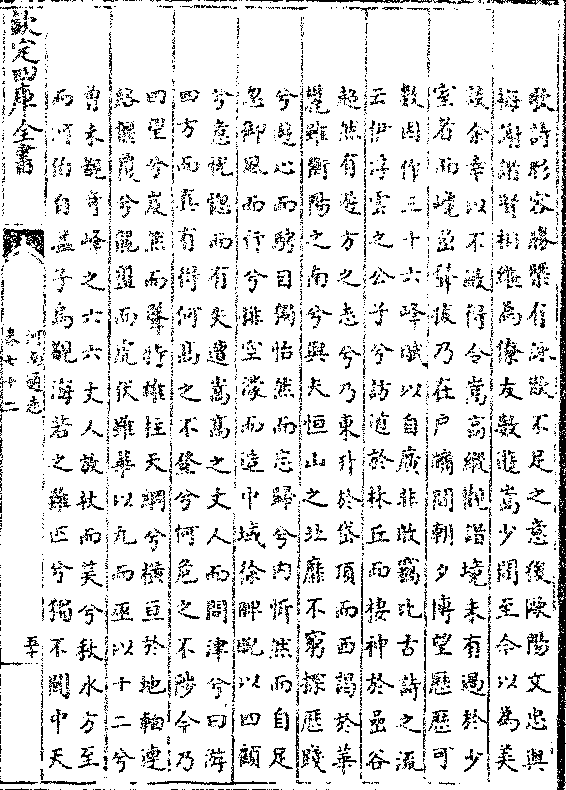 歌詩形容勝槩有詠歎不足之意後歐陽文忠與
梅謝諸賢相繼為僚友數遊嵩少間至今以為美
談余幸以不敏得令嵩高縱觀諸境未有過於少
室者而峻並聳拔乃在户牖間朝夕傳望歴歴可
數因作三十六峰賦以自廣非敢竊比古詩之流
云伊浮雲之公子兮訪道於林丘而棲神於嵒谷
超然有遊方之志兮乃東升於岱頂而西謁於華
巔雖衡陽之南兮與夫恒山之北靡不窮探歴踐
兮遊心而騁目獨怡然而忘歸兮内忻然而自足
忽御風而行兮排空濛而造中域徐睥睨以四顧
兮意恍惚而有失遭嵩髙之丈人而問津兮曰游
四方而真有得何髙之不登兮何危之不陟今乃
四望兮嵗然而聳峙雄拄天綱兮横亘於地軸連
絡偃蹇兮龍蟠而虎伏雖華以九而巫以十二兮
曽未覩竒峰之六六丈人欹杖而笑兮秋水方至
而河伯自孟子為觀海若之難匹兮獨不聞中天
欽定四庫全書
河南通志
卷七十二